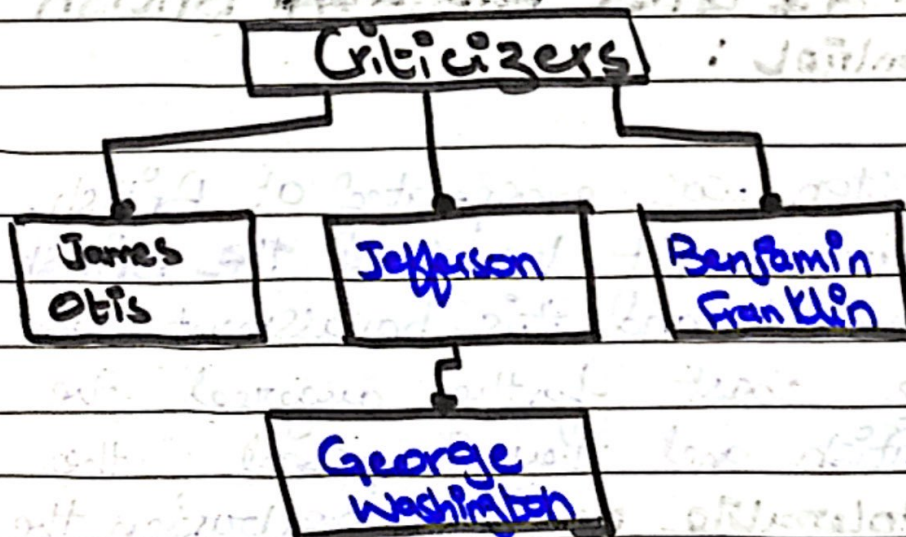 Criticizers
James
Otis
Jefferson
Benjamin
Franklin
George
Washington